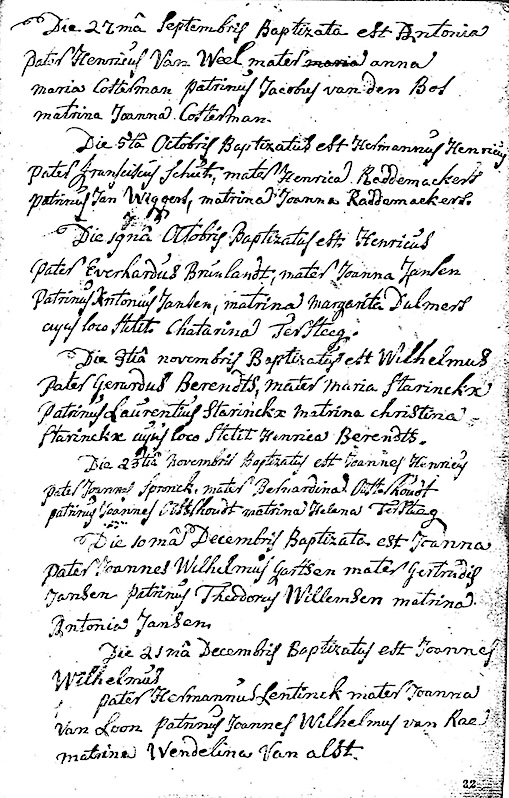 Die 27mâ Septembris Baptizata est Antonia
pater Henricus Van Weel mater maria anna
maria Costerman patrinus Jacobus van den Bos
matrina Joanna Costerman.
Die 5tâ Octobris Baptizatus est Hermannus Henricus
pater Franciscus Schut, mater Henrica Raddemackers
patrinus Jan Wiggers, matrina Joanna Raddemaekers.
Die 19nâ Octobris Baptizatus est Henricus
pater Everhardus Brunlandt, mater Joanna Jansen
Patrinus Antonius Jansen, matrina margarita Dalmers
cujus loco stetit Chatarina Tersteeg.
Die 3tiâ novembris Baptizatus est Wilhelmus
Pater Gerardus Berendts, mater maria Starinckx
Patrinus Laurentius Starinckx matrina christina
Starinckx cujus loco stetit Henrica Berendts.
Die 23tiâ Novembris Baptizatus est Joannes Henricus
pater Joannes Spronck, mater Bernardina
patrinus Joannes matrina Helena Tersteeg
Die 10mâ Decembris Baptizata est Joanna
pater Joannes Wilhelmus Gartsen mater Gertrudis
Jansen patrinus Theodorus Willemsen matrina
Antonia Jansen.
Die 21mâ Decembris Baptizatus est Joannes
Wilhelmus
pater Hermannus Lentinck mater Joanna
Van Loon patrinus Joannes Wilhelmus van Rae
matrina Wendelina Van alst.
22